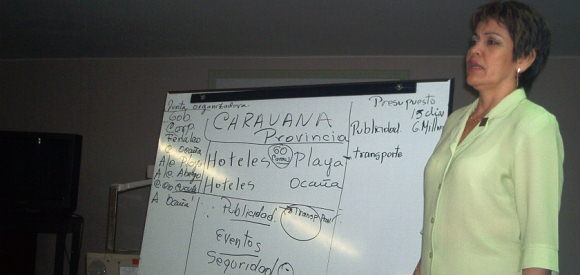 Junta organizadora
Gob
Corp.
Fenalco
C. Ocaña
Alc. Playa
Alc. Abrego
A Ocaña
CARAVANA
Provincia
Hoteles 60 Playa
Hoteles Ocaña
Publicidad
Eventos
Seguridad
Presupuesto
15 días
Publicidad. 6 Millon
- transporte